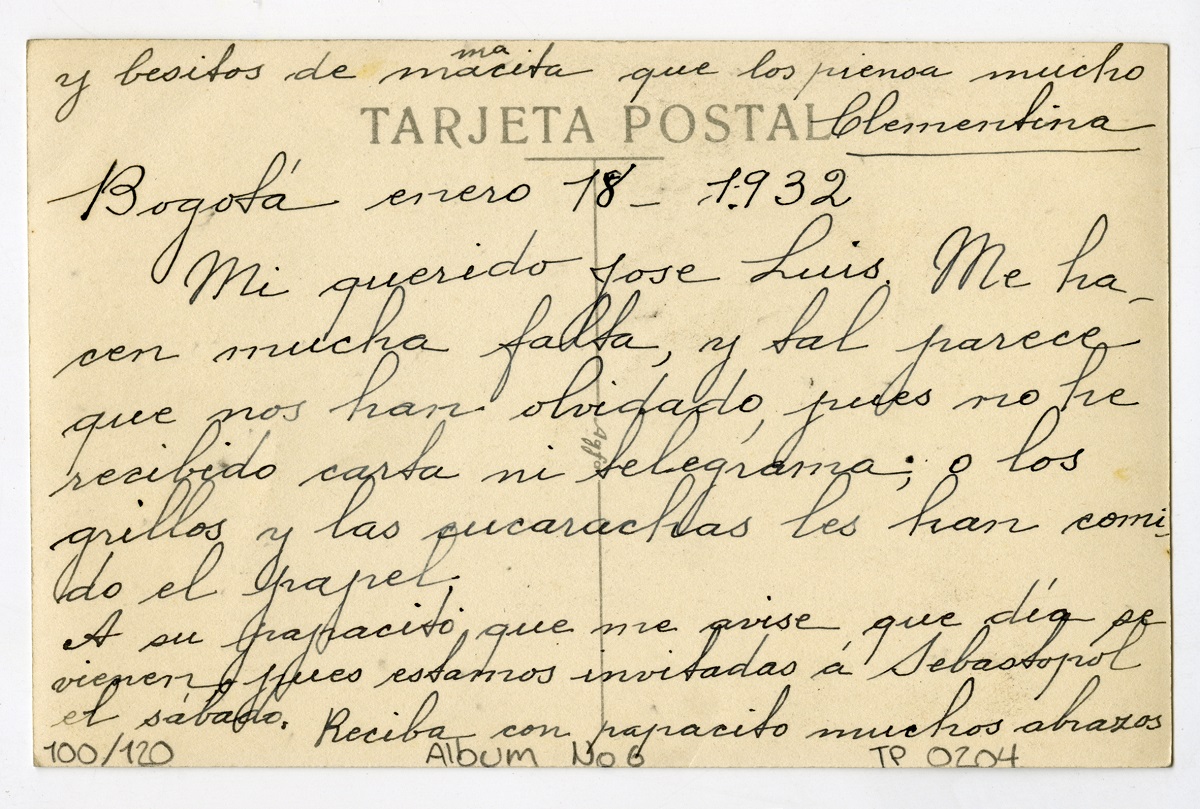 y besitos de mamacita que los piensa mucho
TARJETA POSTAL
Clementina
Bogotá enero 18 - 1932
Mi querido Jose Luis. Me ha-
cen mucha falta, y tal parece
que nos han olvidado, pues no he
recibido carta ni telegrama; o los
grillos y las cucarachas les han comi-
do el papel.
A su papacito que me avise que día se
vienen, pues estamos invitadas á Sebastopol
el sábado. Reciba con papacito muchos abrazos
Agfa
100/120 Album No 6 TP 0204